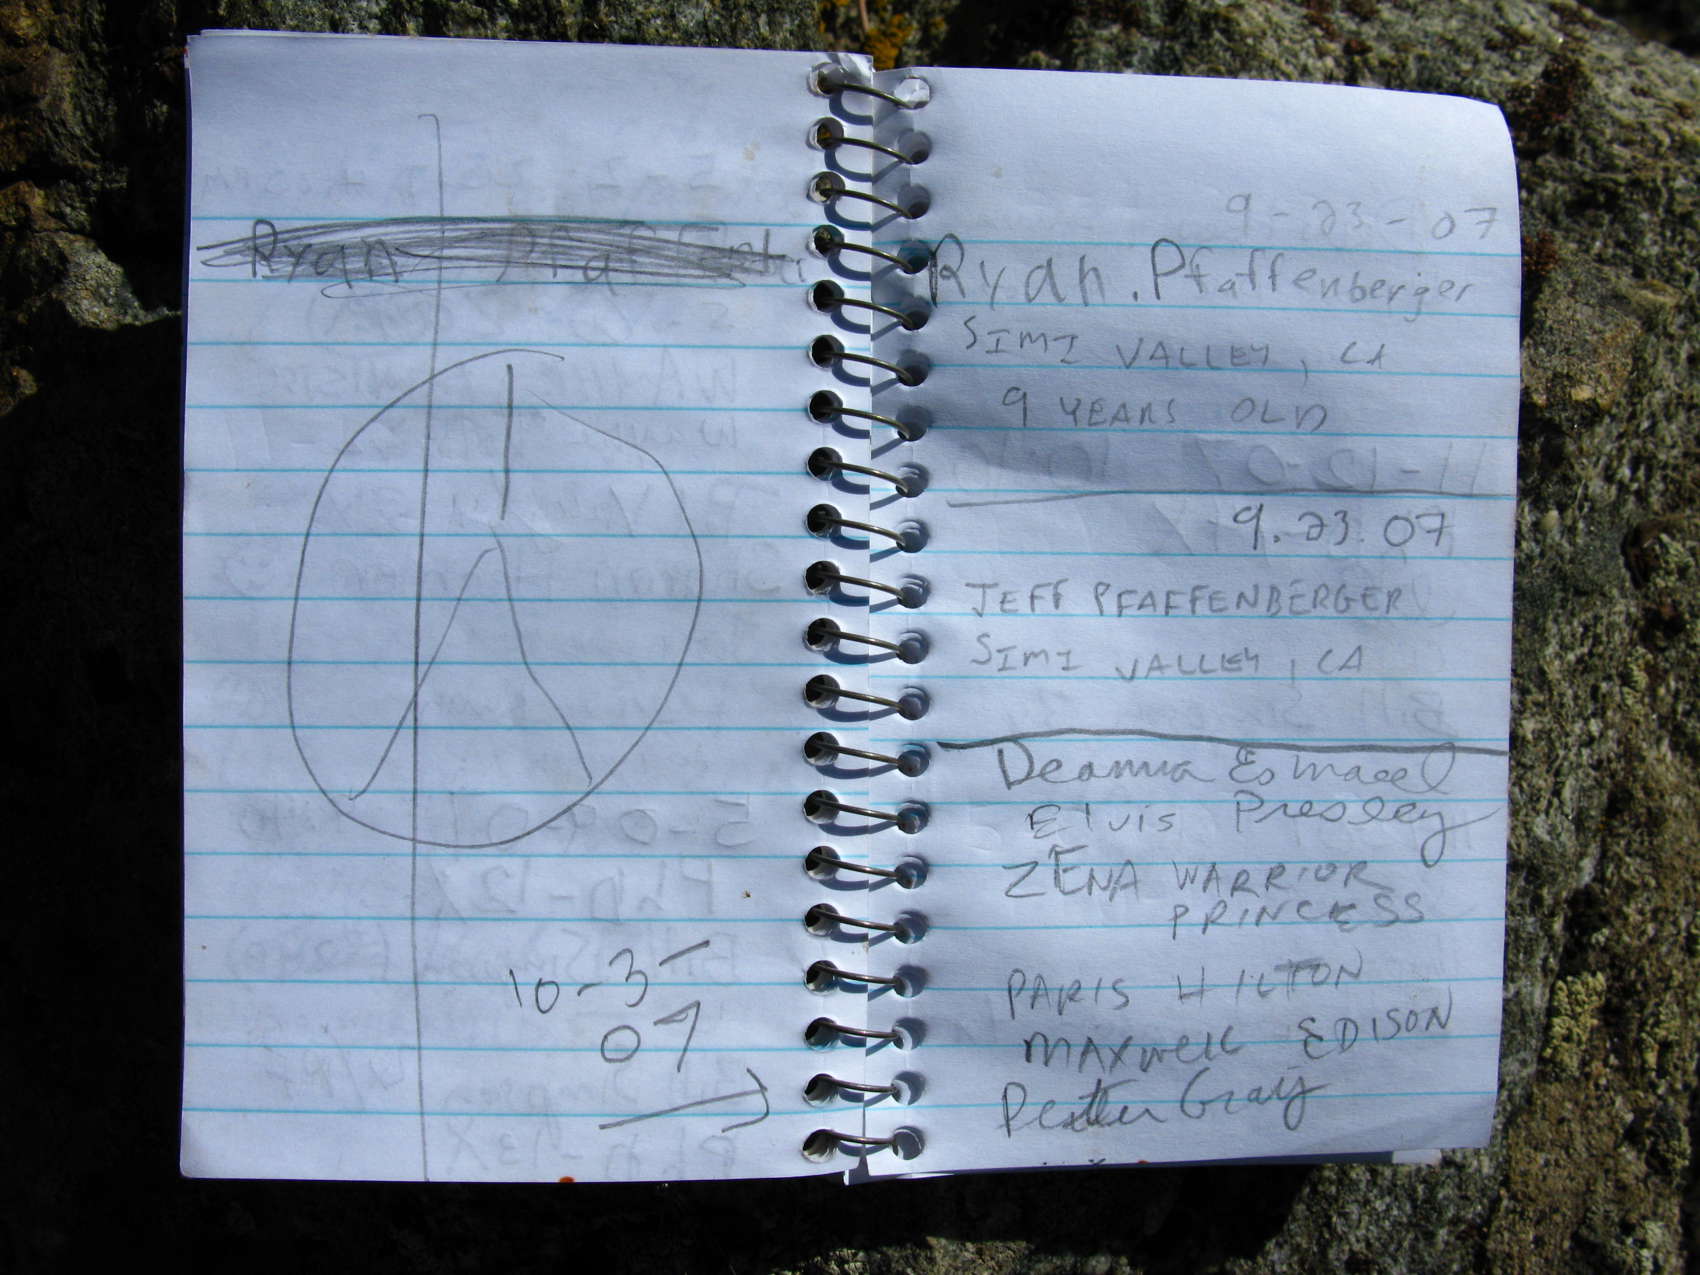 Ryan Pfaffenb
10-3-
07
9-23-07
Ryan. Pfaffenberger
SIMI VALLEY, CA
9 YEARS OLD
9.23.07
JEFF PFAFFENBERGER
SIMI VALLEY, CA
Deanna Esmael
Elvis Presley
ZENA WARRIOR
PRINCESS
PARIS HILTON
MAXWELL EDISON